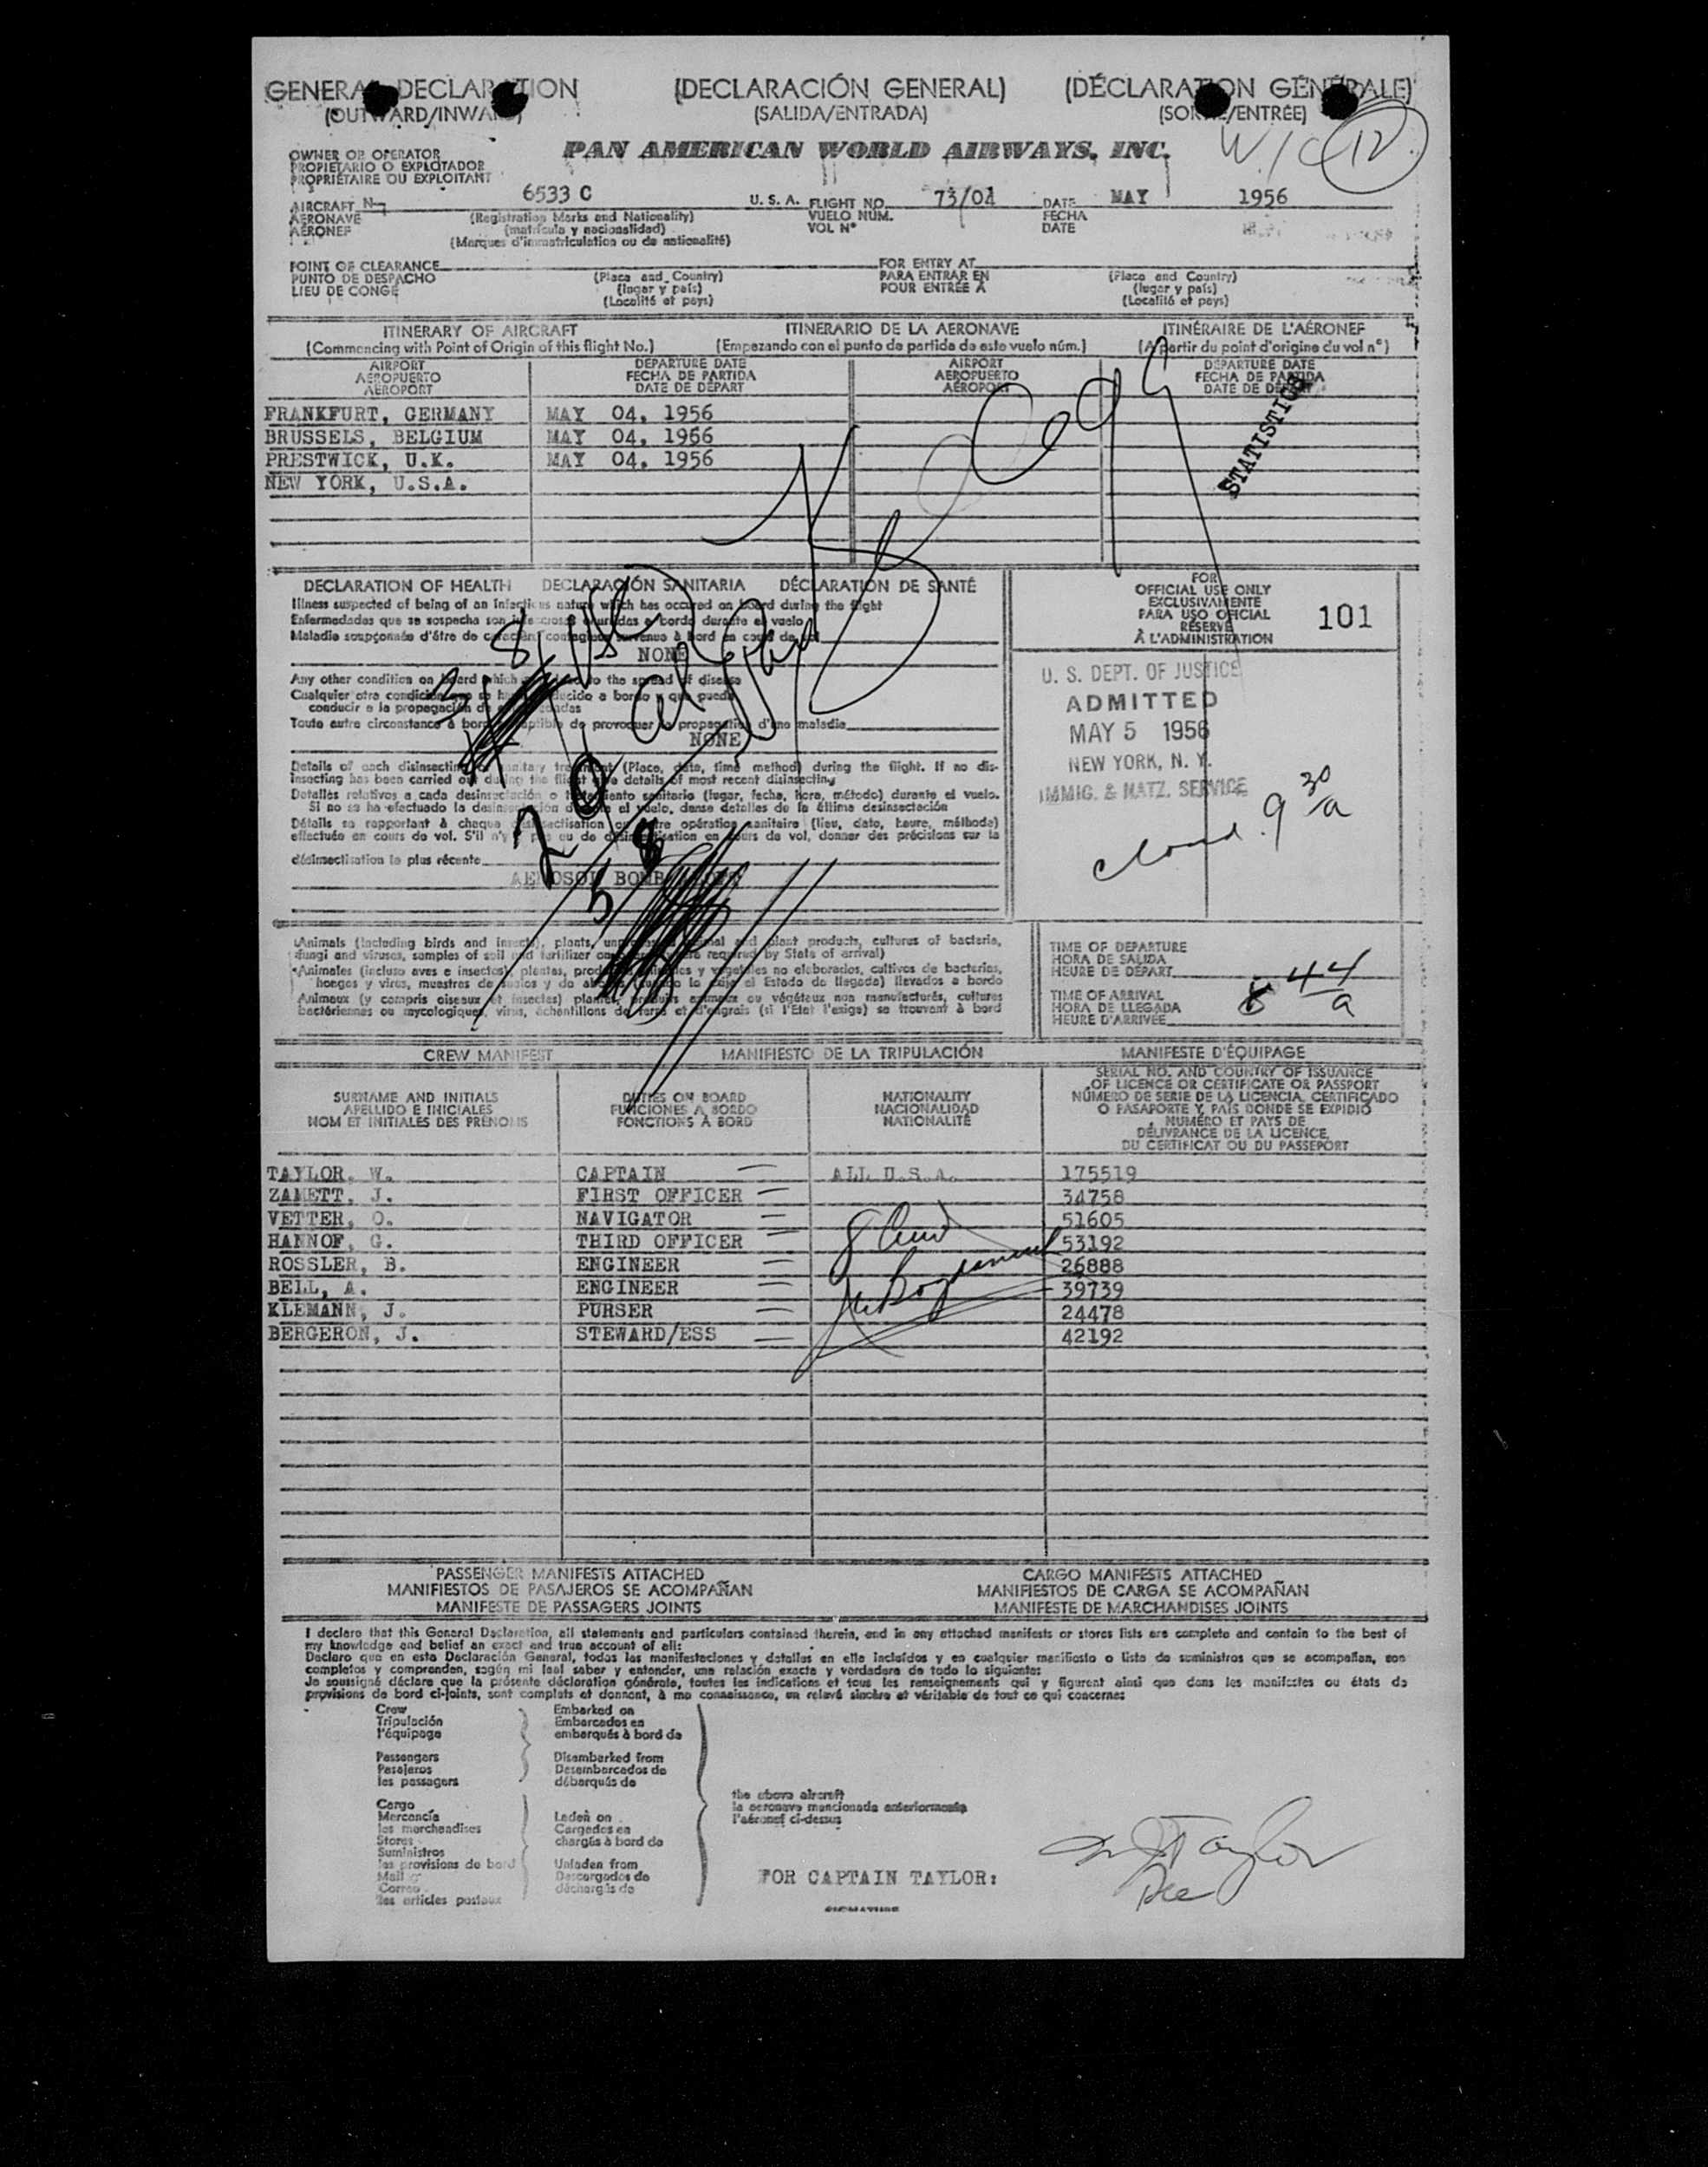 GENERAL DECLARATION (DECLARACIÓN GENERAL) (DÉCLARATION GÉNÉRALE)
(OUTWARD/INWARD) (SALIDA/ENTRADA) (SORTIE/ENTRÉE)
W/C 12
OWNER OR OPERATOR
PROPIETARIO O EXPLOTADOR
PROPRIÉTAIRE OU EXPLOITANT
PAN AMERICAN WORLD AIRWAYS, INC.
AIRCRAFT N- 6533 C U. S. A. FLIGHT NO. 73/04 DATE MAY 1956
AERONAVE (Registration Marks and Nationality) VUELO NÚM. FECHA
AÉRONEF (matrícula y nacionalidad) VOL Nº DATE
(Marques d'immatriculation ou de nationalité)
POINT OF CLEARANCE FOR ENTRY AT
PUNTO DE DESPACHO (Place and Country) PARA ENTRAR EN (Place and Country)
LIEU DE CONGÉ (lugar y país) POUR ENTRÉE À (lugar y país)
(Localité et pays) (Localité et pays)
ITINERARY OF AIRCRAFT ITINERARIO DE LA AERONAVE ITINÉRAIRE DE L'AÉRONEF
(Commencing with Point of Origin of this flight No.) (Empezando con el punto de partida de este vuelo núm.) (A partir du point d'origine du vol nº)
AIRPORT DEPARTURE DATE AIRPORT DEPARTURE DATE
AEROPUERTO FECHA DE PARTIDA AEROPUERTO FECHA DE PARTIDA
AÉROPORT DATE DE DÉPART AÉROPORT DATE DE DÉPART
FRANKFURT, GERMANY MAY 04, 1956
BRUSSELS, BELGIUM MAY 04, 1956
PRESTWICK, U.K. MAY 04, 1956
NEW YORK, U.S.A.
STATISTICS
DECLARATION OF HEALTH DECLARACIÓN SANITARIA DÉCLARATION DE SANTÉ
Illness suspected of being of an infectious nature which has occured on board during the flight
Enfermedades que se sospecha son infecciosas ocurridas a bordo durante el vuelo
Maladie soupçonnée d'être de caractère contagieux survenue à bord en cours de vol
NONE
Any other condition on board which may lead to the spread of disease
Cualquier otra condición que se haya producido a bordo y que pueda
conducir a la propagación de enfermedades
Toute autre circonstance à bord susceptible de provoquer la propagation d'une maladie
NONE
Details of each disinsecting or sanitary treatment (Place, date, time method) during the flight. If no dis-
insecting has been carried out during the flight give details of most recent disinsecting
Detalles relativos a cada desinsectación o tratamiento sanitario (lugar, fecha, hora, método) durante el vuelo.
Si no se ha efectuado la desinsectación durante el vuelo, dense detalles de la última desinsectación
Détails se rapportant à chaque désinsectisation ou autre opération sanitaire (lieu, date, heure, méthode)
effectuée en cours de vol. S'il n'y a pas eu de désinsectisation en cours de vol, donner des précisions sur la
désinsectisation le plus récente
AEROSOL BOMB
FOR
OFFICIAL USE ONLY
EXCLUSIVAMENTE
PARA USO OFICIAL
RÉSERVÉ
À L'ADMINISTRATION
101
U. S. DEPT. OF JUSTICE
ADMITTED
MAY 5 1956
NEW YORK, N. Y.
IMMIG. & NATZ. SERVICE
9 30 a
Animals (including birds and insects), plants, unprocessed animal and plant products, cultures of bacteria,
fungi and viruses, samples of soil and fertilizer on board (where required by State of arrival)
Animales (incluso aves e insectos), plantas, productos animales y vegetales no elaborados, cultivos de bacterias,
hongos y virus, muestras de suelos y de abonos (cuando lo exija el Estado de llegada) llevados a bordo
Animaux (y compris oiseaux et insectes) plantes, produits animaux ou végétaux non manufacturés, cultures
bactériennes ou mycologiques, virus, échantillons de terre et d'engrais (si l'Etat l'exige) se trouvant à bord
TIME OF DEPARTURE
HORA DE SALIDA
HEURE DE DÉPART
TIME OF ARRIVAL
HORA DE LLEGADA
HEURE D'ARRIVÉE
8 44 a
CREW MANIFEST MANIFIESTO DE LA TRIPULACIÓN MANIFESTE D'ÉQUIPAGE
SURNAME AND INITIALS
APELLIDO E INICIALES
NOM ET INITIALES DES PRÉNOMS
DUTIES ON BOARD
FUNCIONES A BORDO
FONCTIONS À BORD
NATIONALITY
NACIONALIDAD
NATIONALITÉ
SERIAL NO. AND COUNTRY OF ISSUANCE
OF LICENCE OR CERTIFICATE OR PASSPORT
NÚMERO DE SERIE DE LA LICENCIA, CERTIFICADO
O PASAPORTE Y PAÍS DONDE SE EXPIDIÓ
NUMÉRO ET PAYS DE
DÉLIVRANCE DE LA LICENCE,
DU CERTIFICAT OU DU PASSEPORT
TAYLOR, W. CAPTAIN ALL U.S.A. 175519
ZAMETT, J. FIRST OFFICER 34758
VETTER, O. NAVIGATOR 51605
HANNOF, G. THIRD OFFICER 53192
ROSSLER, B. ENGINEER 26888
BELL, A. ENGINEER 39739
KLEMANN, J. PURSER 24478
BERGERON, J. STEWARD/ESS 42192
PASSENGER MANIFESTS ATTACHED CARGO MANIFESTS ATTACHED
MANIFIESTOS DE PASAJEROS SE ACOMPAÑAN MANIFIESTOS DE CARGA SE ACOMPAÑAN
MANIFESTE DE PASSAGERS JOINTS MANIFESTE DE MARCHANDISES JOINTS
I declare that this General Declaration, all statements and particulars contained therein, and in any attached manifests or stores lists are complete and contain to the best of
my knowledge and belief an exact and true account of all:
Declaro que en esta Declaración General, todas las manifestaciones y detalles en ella incluídos y en cualquier manifiesto o lista de suministros que se acompañan, son
completos y comprenden, según mi leal saber y entender, una relación exacta y verdadera de todo lo siguiente:
Je soussigné déclare que la présente déclaration générale, toutes les indications et tous les renseignements qui y figurent ainsi que dans les manifestes ou états de
provisions de bord ci-joints, sont complets et donnent, à ma connaissance, un relevé sincère et véritable de tout ce qui concerne:
Crew Embarked on
Tripulación Embarcados en
l'équipage embarqués à bord de
Passengers Disembarked from
Pasajeros Desembarcados de
les passagers débarqués de
Cargo
Mercancía Laden on
les marchandises Cargados en
Stores chargés à bord de
Suministros
les provisions de bord Unladen from
Mail Descargados de
Correo déchargés de
les articles postaux
the above aircraft
la aeronave mencionada anteriormente
l'aéronef ci-dessus
FOR CAPTAIN TAYLOR:
Taylor
SIGNATURE